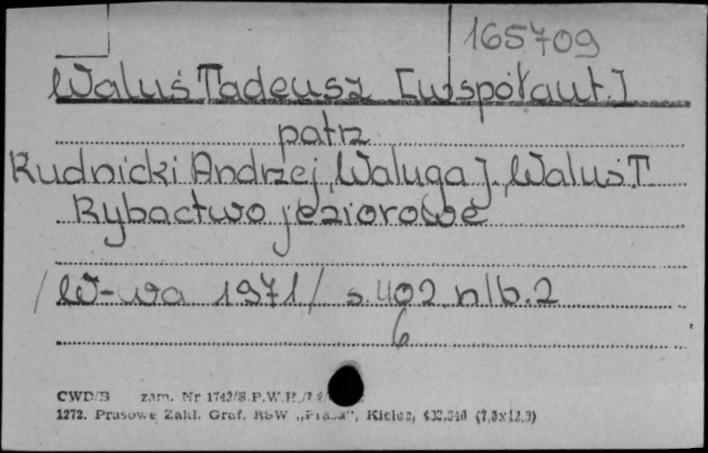 165709
Waluś Tadeusz [współaut.]
patrz
Rudnicki Andrzej, Waluga J., Waluś T.
Rybactwo jeziorowe
/W-wa 1971/ s. 402 nlb. 2
6
CWD/B zam. Nr 1743/S.P.W.H.
1272. Prasowe Zakł. Graf. RSW „Prasa”, Kielce, (7,5x12,5)